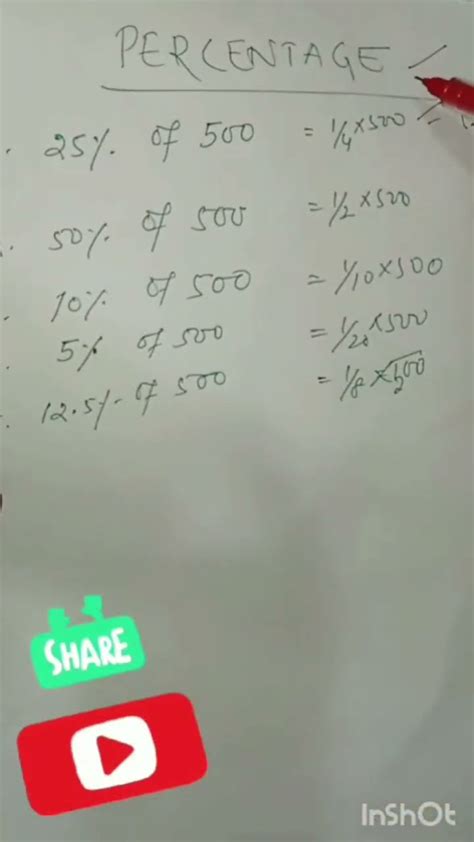 PERCENTAGE
25% of 500 = 1/4 × 500 =
50% of 500 = 1/2 × 500
10% of 500 = 1/10 × 500
5% of 500 = 1/20 × 500
12.5% of 500 = 1/8 × 500
SHARE
InShOt